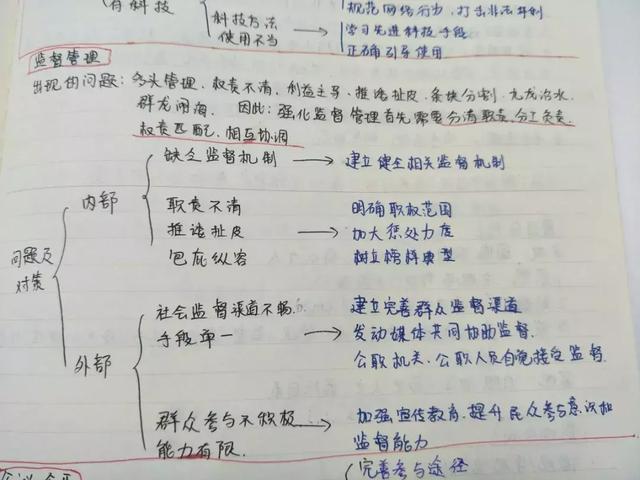 有科技
科技方法
使用不当
规范网络行为,打击非法
学习先进科技手段
正确引导使用
监督管理
出现的问题:多头管理、权责不清、利益主导、推诿扯皮、条块分割、九龙治水、
群龙闹海。因此:强化监督管理首先需要分清职责,分工负责,
权责匹配,相互协调
问题及
对策
内部
缺乏监督机制 → 建立健全相关监督机制
职责不清 明确职权范围
推诿扯皮 → 加大惩处力度
包庇纵容 树立榜样典型
外部
社会监督渠道不畅 建立完善群众监督渠道
手段单一 → 发动媒体共同协助监督.
公职机关、公职人员自觉接受监督.
群众参与不积极 → 加强宣传教育、提升民众参与意识和
能力有限. 监督能力
完善参与途径